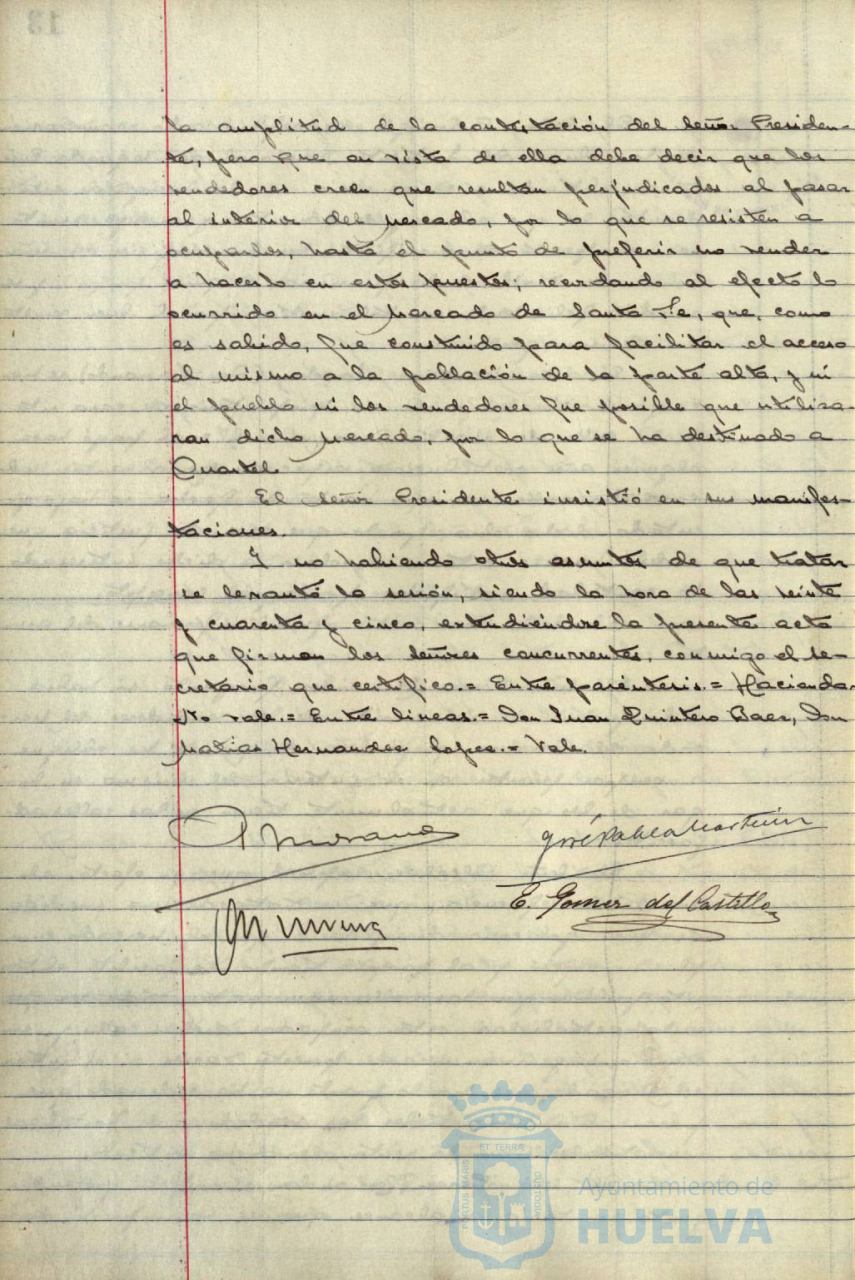 la amplitud de la contestación del Señor Presiden-
te, pero que en vista de ella debe decir que los
vendedores creen que resultan perjudicados al pasar
al interior del Mercado, por lo que se resisten a
ocuparlos, hasta el punto de preferir no vender
a hacerlo en estos puestos; recordando al efecto lo
ocurrido en el Mercado de Santa Fe, que, como
es sabido, fue construido para facilitar el acceso
al mismo a la población de la parte alta, y ni
el pueblo ni los vendedores fue posible que utiliza-
ran dicho Mercado, por lo que se ha destinado a
Cuartel.
El Señor Presidente insistió en sus manifes-
taciones.
Y no habiendo otros asuntos de que tratar
se levantó la sesión, siendo la hora de las veinte
y cuarenta y cinco, extendiéndose la presente acta
que firman los Señores concurrentes, conmigo el Se-
cretario que certifico.= Entre paréntesis.= Hacienda.
No vale.= Entre lineas.= Don Juan Quintero Baez, Don
Matias Hernandez Lopez.= Vale.
José Pablo Martinez
E. Gomez del Castillo
13
PORTUS MARIS
ET TERRÆ
CUSTODIA
Ayuntamiento de
HUELVA